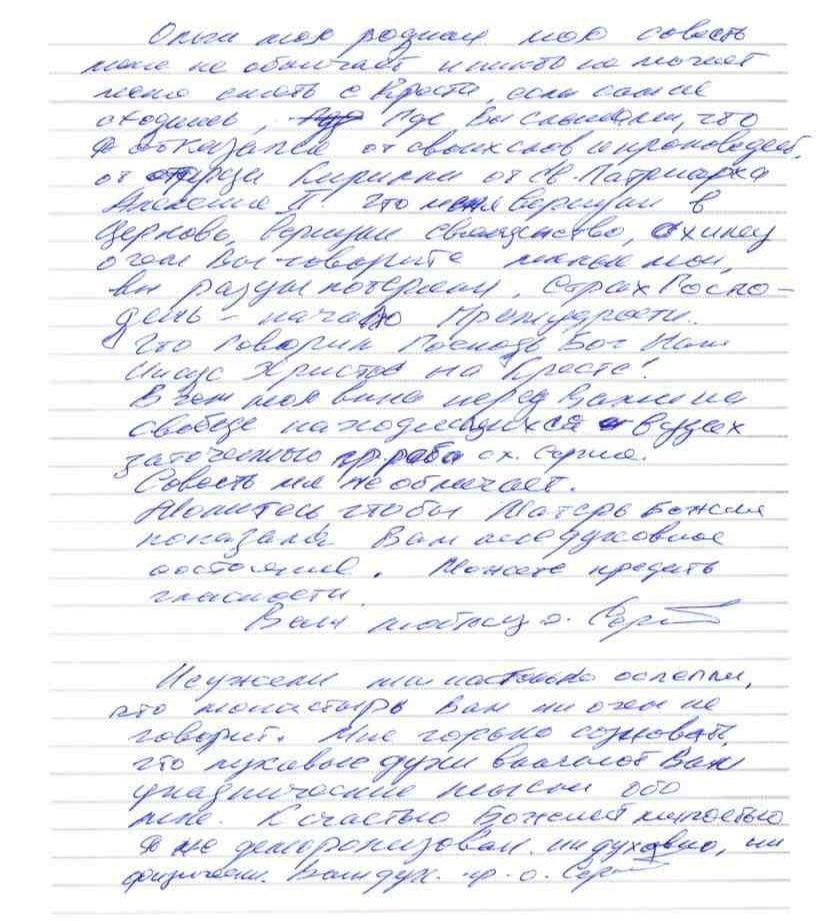 моя родная моя совесть
меня не обличает и никто не может
меня снять с Креста, если сам не
сходишь, Где Вы слышали, что
я отказался от своих слов и проповедей,
от Кирилла от Св. Патриарха
Алексия II что меня вернули в
Церковь, Вернули священство, схиму
о чем Вы говорите милые мои,
вы разум потеряли, Страх Госпо-
день - начало Премудрости.
Что Говорил Господь Бог Наш
Иисус Христос на Кресте!
В чем моя вина перед Вами на
свободе находящихся в узах
заточенного гр. раба сх. Сергия.
Совесть мя не обличает.
Молитесь чтобы Матерь Божия
показала Вам мое духовное
состояние. Можете предать
гласности.
Ваш о. Сергий
Неужели мы настолько ослепли,
что монастырь Вам ни о чем не
говорит. Мне горько сознавать,
что лукавые духи влагают Вам
мысли обо
мне. К счастью Божией милостью
я не деморализован ни духовно, ни
физически. Ваш дух. о. Сергий